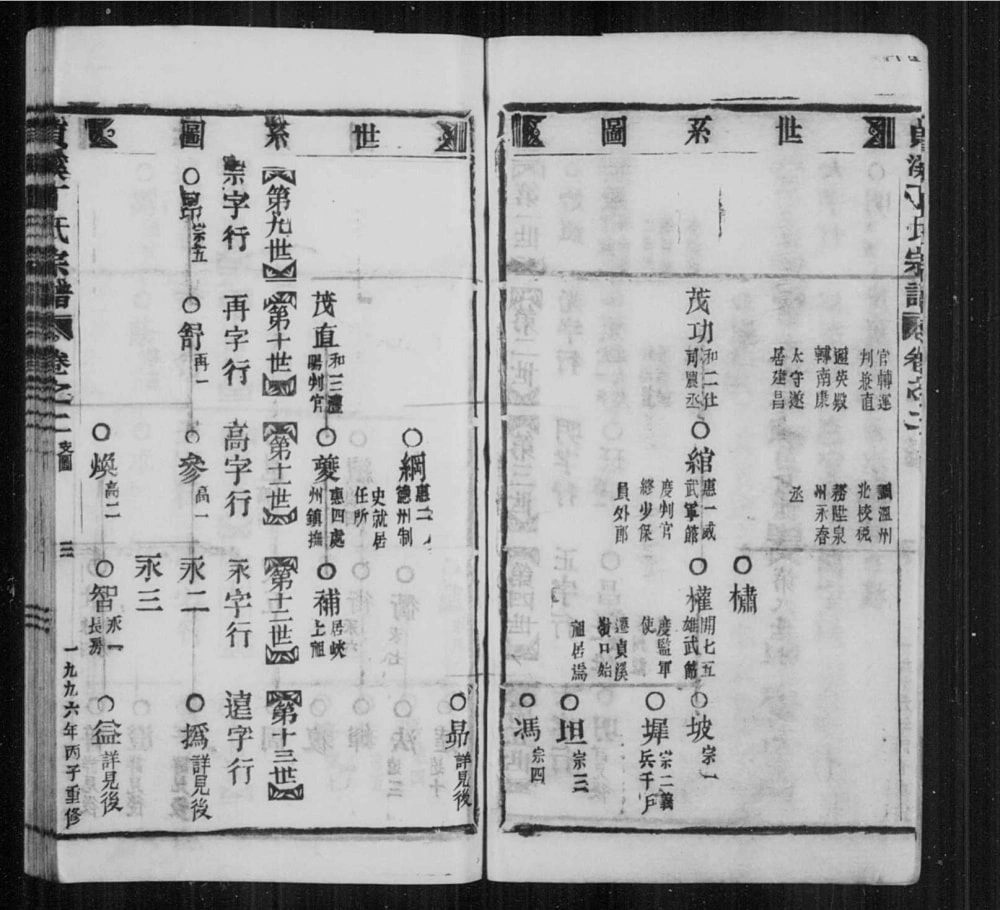 世系圖
官轉運
判兼直
邇英殿
轉南康
太守遂
居建昌
茂功
和二仕
司農丞
調溫州
北稅
務陞泉
州永春
丞
○綰
惠一咸
武軍節
慶判官
終少保
員外郎
橚
○權
開七五
雄武節
慶監軍
使
遷貞溪
口始
祖居焉
○坡宗一
○墀宗二義
兵千戶
○坦宗三
○馮宗四
世系圖
○昴詳見後
○綱
惠二
德州制
史就居
任所
茂直
和三濃
陽判官
○夔
惠四處
州鎮撫
○補
居峽
上祖
第九世
第十世
第十一世
第十二世
第十三世
崇字行
再字行
高字行
永字行
遠字行
○昴崇五
○舒再一
○參高一
○永二
○撝詳見後
永三
○煥高二
○智
永一
長房
○益詳見後
貞溪丁氏宗譜
卷之二
支圖
三
一九九六年丙子重修